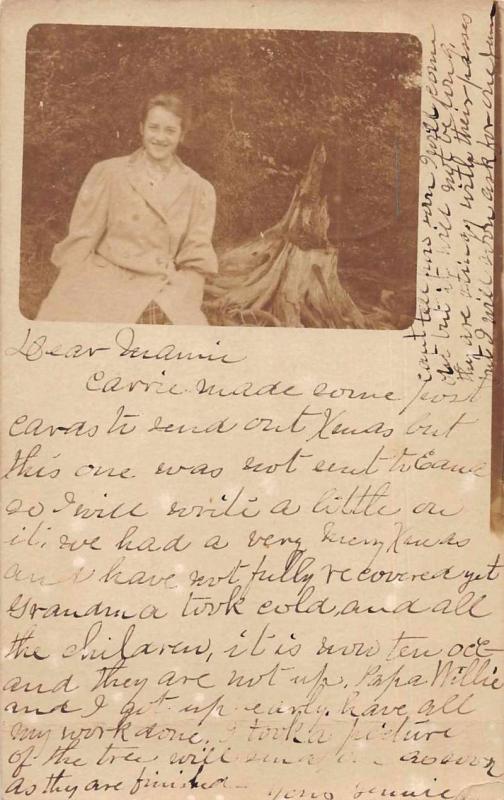 Dear Mamie
Carrie made some post
cards to send out Xmas but
this one was not sent to
so I will write a little on
it. we had a very Merry Xmas
and have not fully recovered yet
Grandma took cold, and all
the children, it is now ten ocl-
and they are not up. Papa Willie
and I got up early. have all
my work done. I took a picture
of the tree will send one as soon
as they are finished - yours
can't tell how soon I will come
but it will not be long.
they are stingy with their passes
but I will soon ask for one